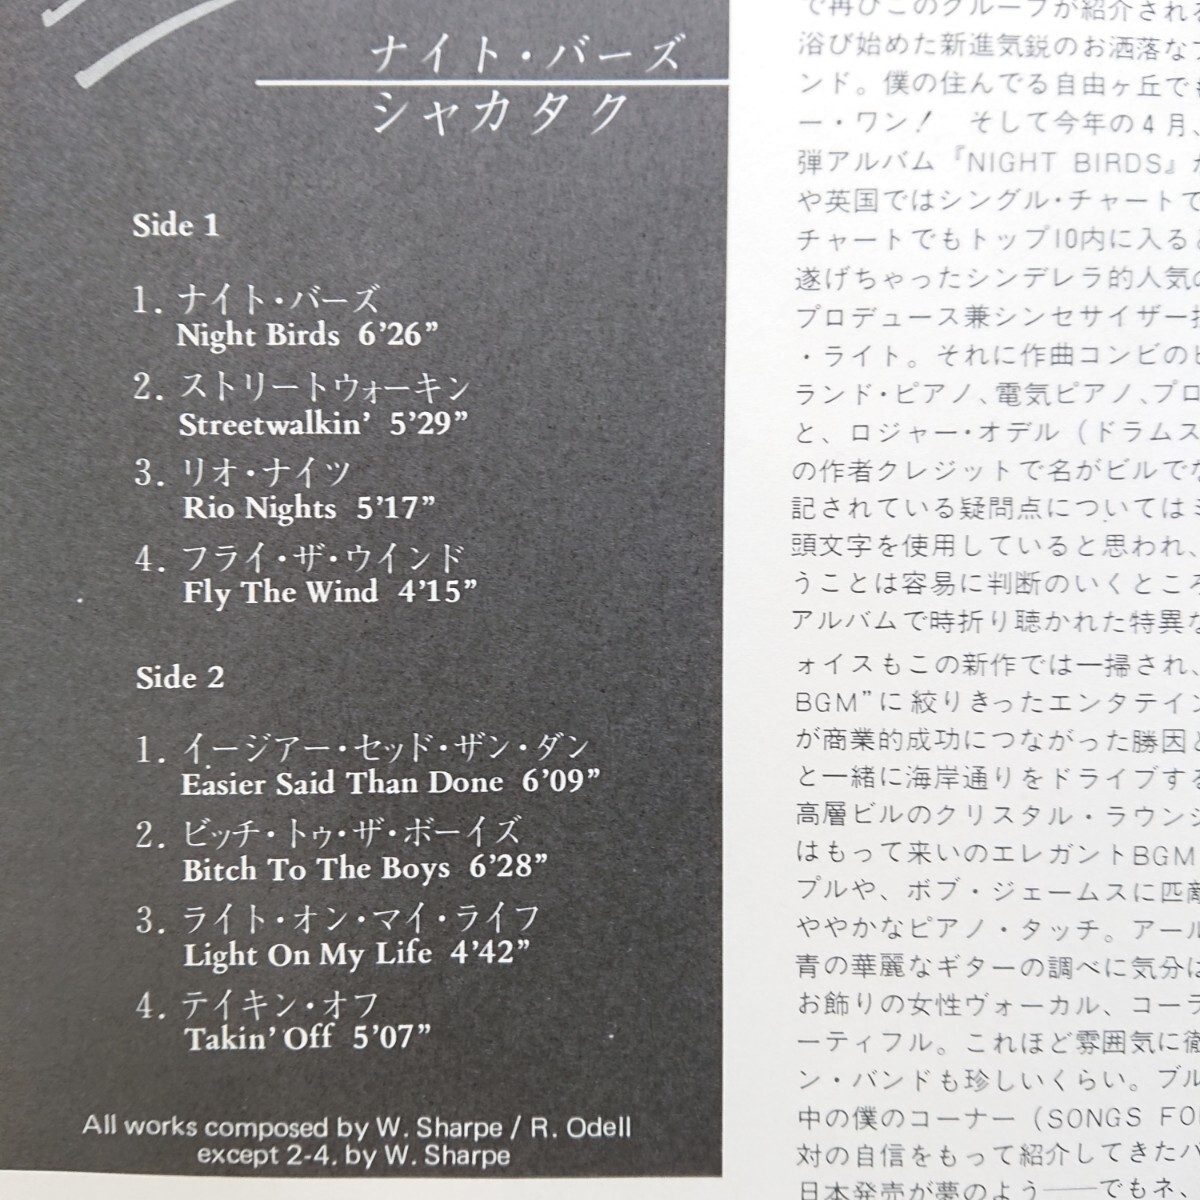 ナイト・バーズ
シャカタク
Side 1
1. ナイト・バーズ
Night Birds 6'26”
2. ストリートウォーキン
Streetwalkin’ 5'29”
3. リオ・ナイツ
Rio Nights 5'17”
4. フライ・ザ・ウインド
Fly The Wind 4'15”
Side 2
1. イージアー・セッド・ザン・ダン
Easier Said Than Done 6'09”
2. ビッチ・トゥ・ザ・ボーイズ
Bitch To The Boys 6'28”
3. ライト・オン・マイ・ライフ
Light On My Life 4'42”
4. テイキン・オフ
Takin’ Off 5'07”
All works composed by W. Sharpe / R. Odell
except 2-4. by W. Sharpe
で再びこのグループが紹介される
浴び始めた新進気鋭のお洒落な
ンド。僕の住んでる自由ヶ丘で
ー・ワン! そして今年の4月、
弾アルバム『NIGHT BIRDS』
や英国ではシングル・チャートで
チャートでもトップ10内に入る
遂げちゃったシンデレラ的人気の
プロデュース兼シンセサイザー
・ライト。それに作曲コンビの
ランド・ピアノ、電気ピアノ、プロ
と、ロジャー・オデル（ドラムス
の作者クレジットで名がビルでな
記されている疑問点については
頭文字を使用していると思われ、
うことは容易に判断のいくところ
アルバムで時折り聴かれた特異な
ォイスもこの新作では一掃され、
BGM”に絞りきったエンタテイ
が商業的成功につながった勝因と
と一緒に海岸通りをドライブする
高層ビルのクリスタル・ラウン
はもって来いのエレガントBGM
プルや、ボブ・ジェームスに匹敵
ややかなピアノ・タッチ。アール
青の華麗なギターの調べに気分は
お飾りの女性ヴォーカル、コーラ
ーティフル。これほど雰囲気に徹
ン・バンドも珍しいくらい。ブル
中の僕のコーナー（SONGS FO
対の自信をもって紹介してきた
日本発売が夢のよう——でもネ、